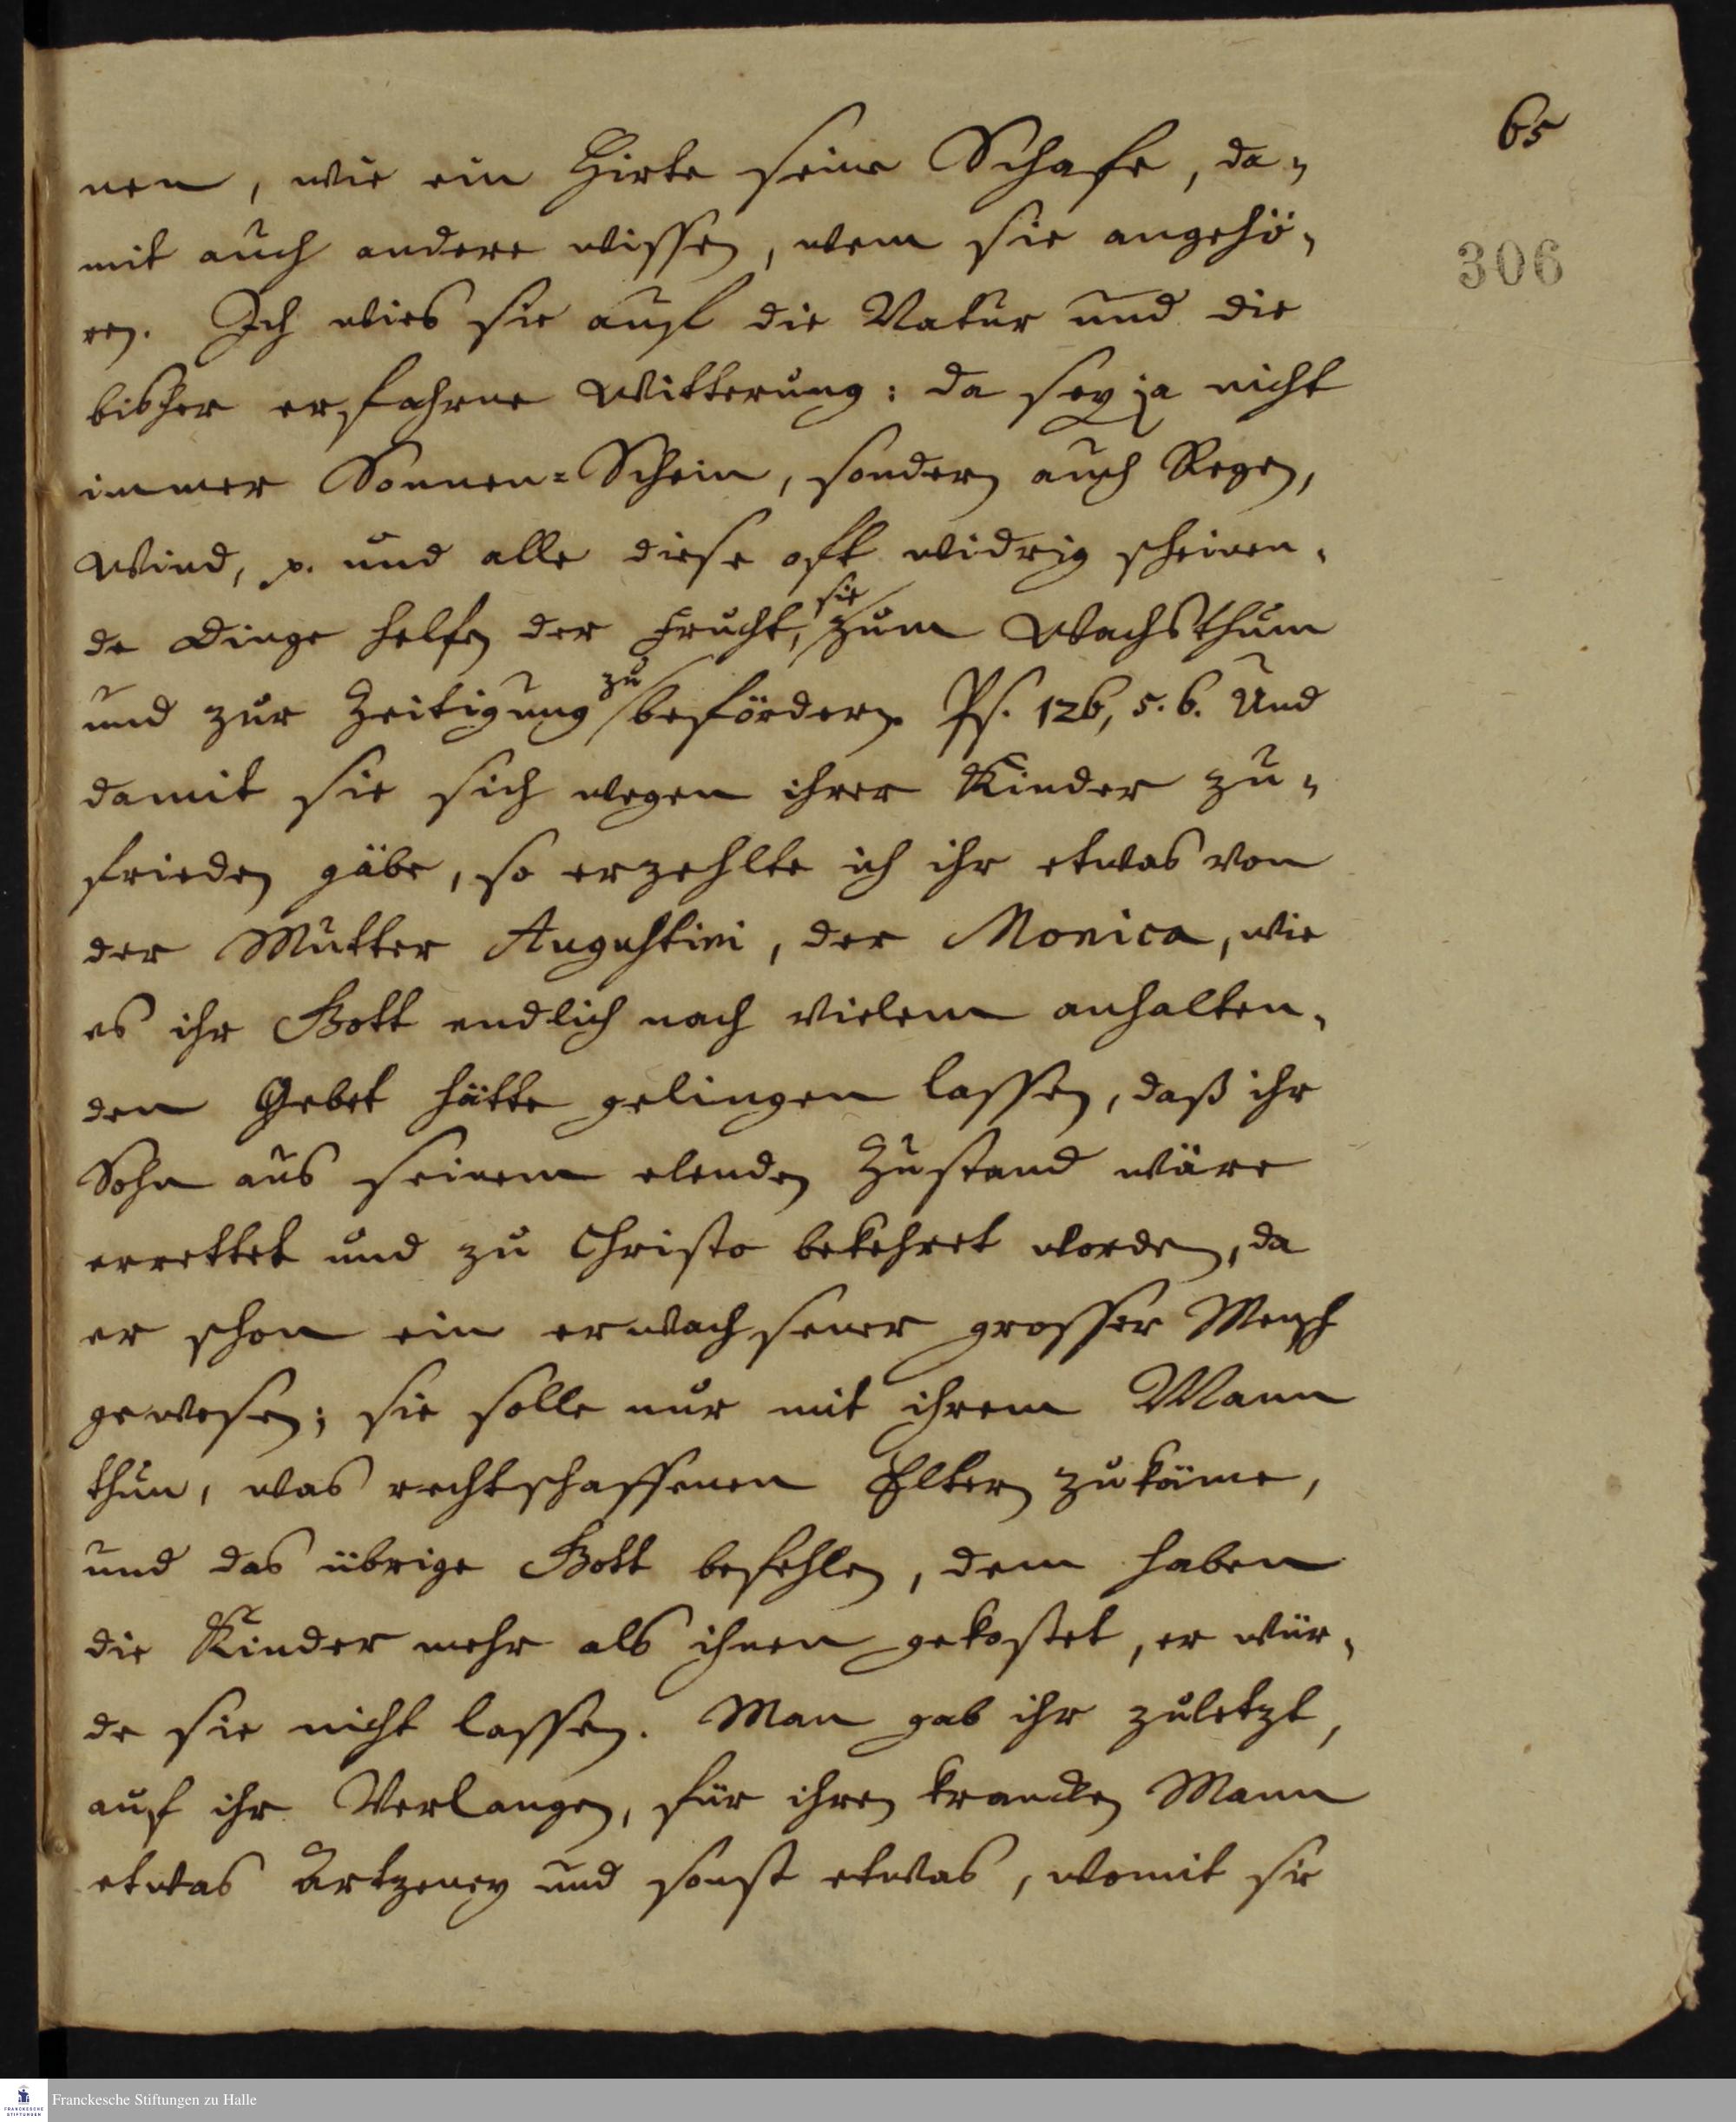 65
306
nen, wie ein Hirte seine Schafe, da-
mit auch andere wissen, wem sie angehö-
ren. Ich wies sie auf die Natur und die
bisher erfahrne Witterung: da sey ja nicht
immer Sonnen-Schein, sondern auch Regen,
Wind, p. und alle diese oft widrig scheinen-
de Dinge helfen der Frucht, sie zum Wachsthum
und zur Zeitigung zu befördern. Ps. 126, 5. 6. Und
damit sie sich wegen ihrer Kinder zu-
frieden gäbe, so erzehlte ich ihr etwas von
der Mutter Augustini, der Monica, wie
es ihr Gott endlich nach vielem anhalten-
den Gebet hätte gelingen lassen, daß ihr
Sohn aus seinem elenden Zustand wäre
errettet und zu Christo bekehret worden, da
er schon ein erwachsener grosser Mensch
gewesen; sie solle nur mit ihrem Mann
thun, was rechtschaffenen Eltern zukäme,
und das übrige Gott befehlen, dem haben
die Kinder mehr als ihnen gekostet, er wür-
de sie nicht lassen. Man gab ihr zuletzt,
auf ihr Verlangen, für ihren krancken Mann
etwas Artzeney und sonst etwas, womit sie
Franckesche Stiftungen zu Halle